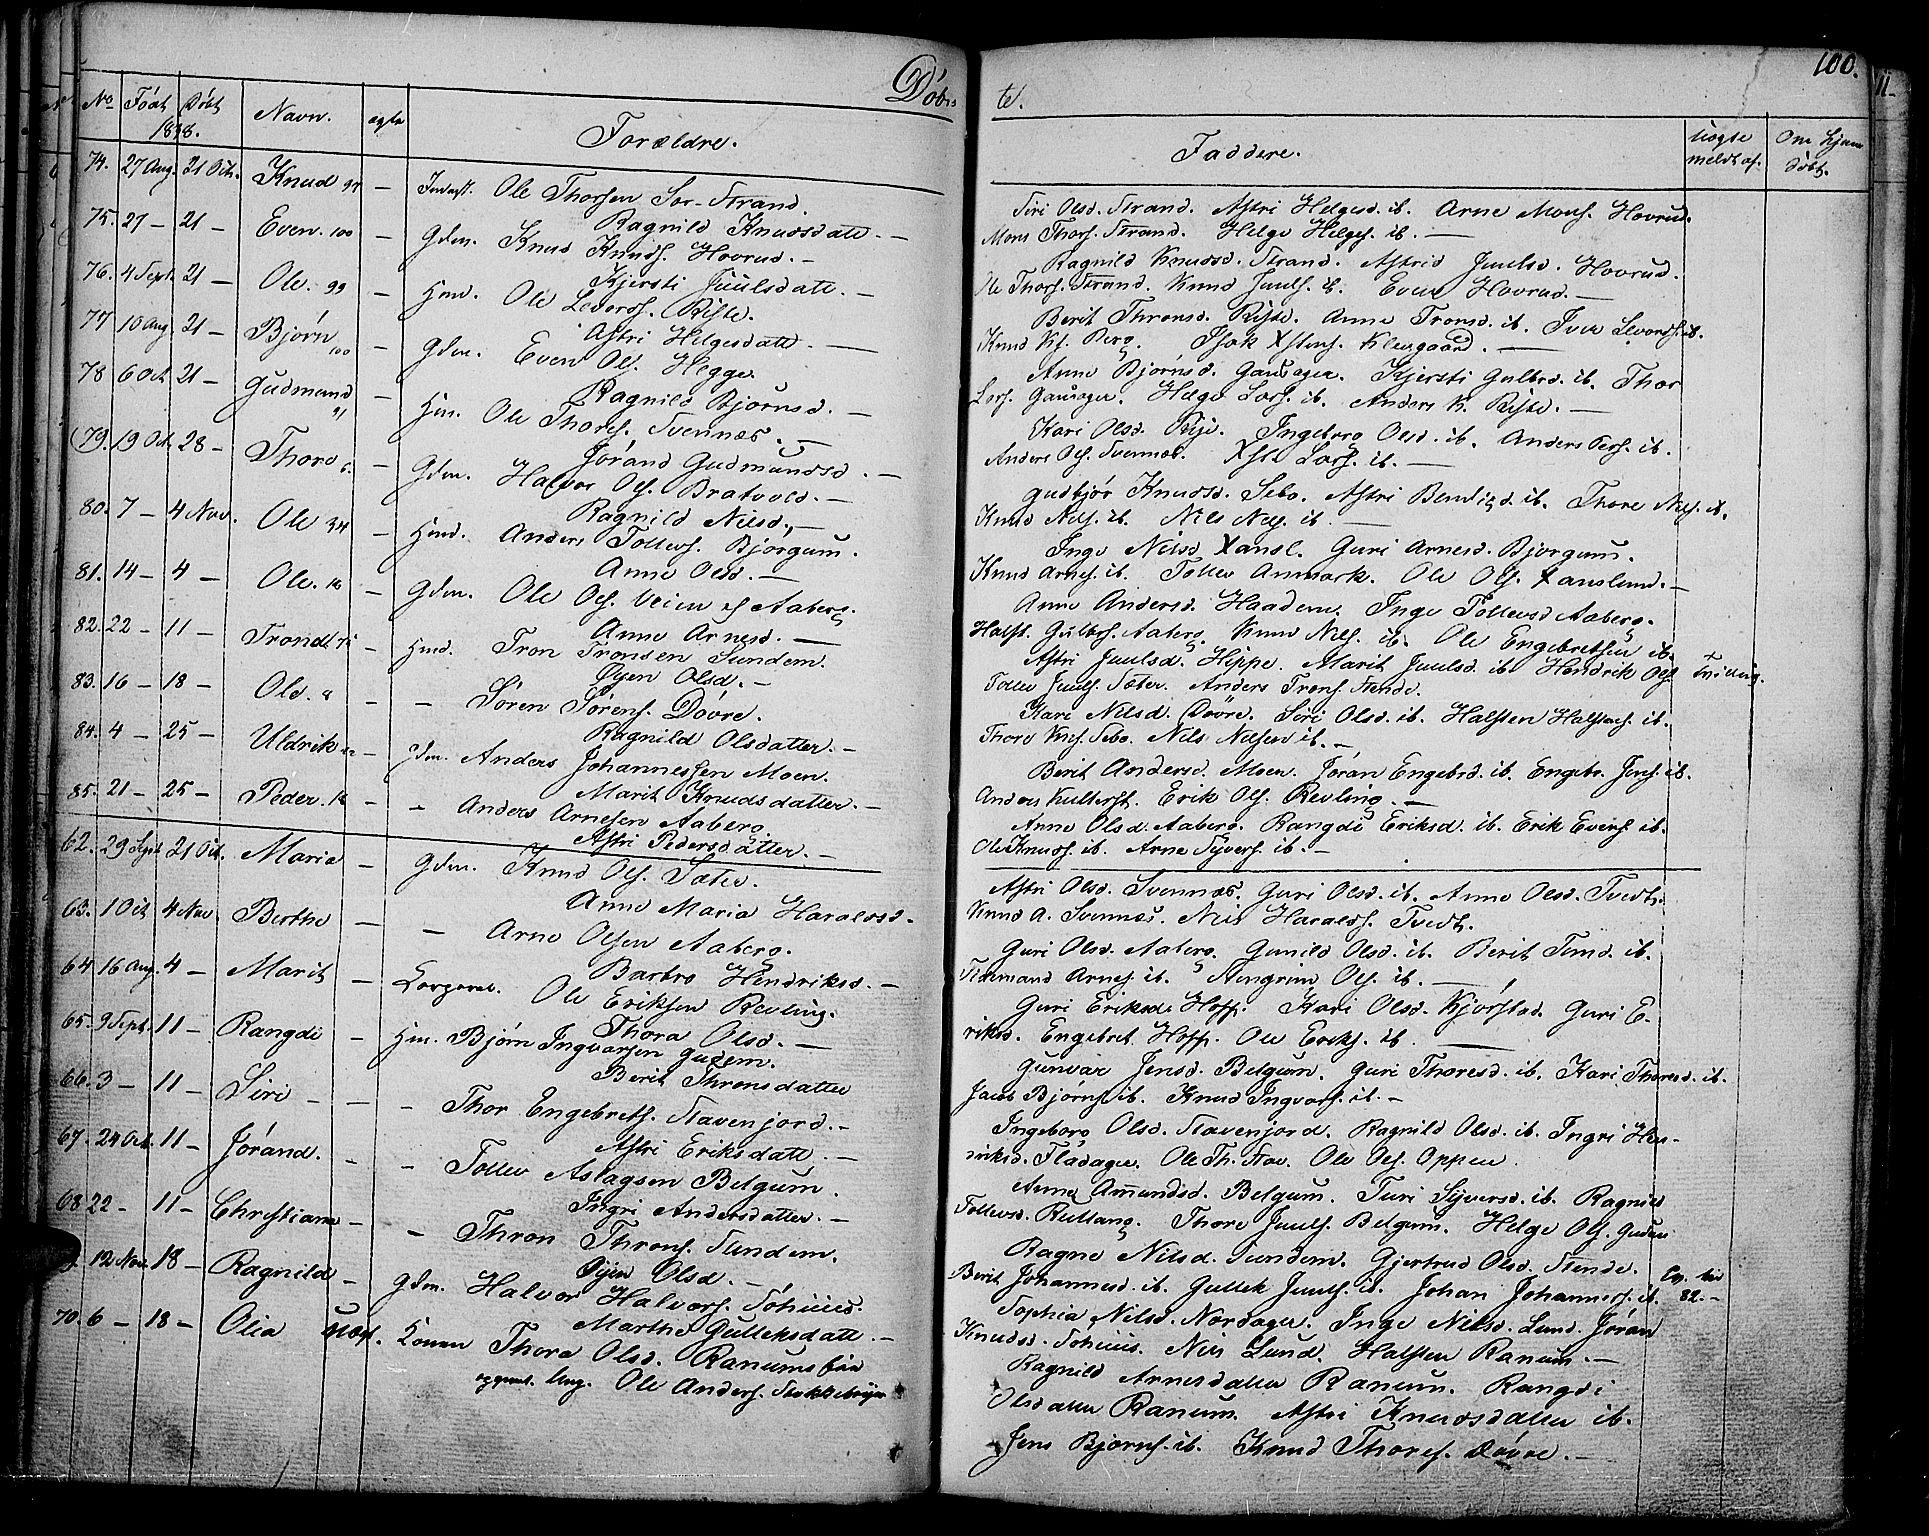 Döbte.
100.
No Födt Döbt Navn. ægte Forældre. Faddere. Uægte meldt af. Om hjem döbt.
1838.
74. 27 Aug. 21 Octr. Knud — Inderst. Ole Thorsen Sör-Strand.
Ragnild Knudsdatt. —
Siri Olsd. Strand. Astri Helgesd. ib. Arne Mons. Hovrud.
Mons Thors. Strand. Helge Helges. ib. —
75. 27 — 21 — Even. 100 — Gdm. Knud Knuds. Hovrud. —
Kjersti Juulsdatt. —
Ragnild Knudsd. Strand. Astrid Juulsd. Hovrud.
Ole Thors. Strand. Knud Juuls. ib. Even Hovrud. —
76. 4 Sept. 21 — Ole. 99 — Hmd. Ole Levords. Riste.
Astri Helgesdatt. —
Berit Thronsd. Riste. Anne Tronsd. ib. Iver Levords. ib.
Knud Ks. Berg. Isak Xstens. Klevgaard. —
77 10 Aug. 21 — Björn 100 — Gdm. Even Ols. Hegge.
Ragnild Björnsd. —
Anne Björnsd. Gausager. Kjersti Gulbrd. ib. Thor
Lars. Gausager. Helge Lars. ib. Anders K. Riste. —
78 6 Oct 21 — Gudmund — Hm. Ole Thores. Svennæs. —
Jörand Gudmundsd. —
Kari Olsd. Ingeborg Olsd. ib. Anders Pers. ib.
Anders Ols. Svennæs. Lars. ib. —
79. 19 Oct. 28 — Thore — Gdm. Halvor Ols. Bratvold. —
Ragnild Nilsd. —
Gudbjör Knudsd. Sebo. Astri Bendigsd. ib. Thore Nels. ib.
Knud Nels. ib. Nils Nels. ib. —
80. 7 — 4 Nov. Ole 34 — Hmd. Anders Tollevs. Björgum.
Anne Olsd. —
Inge Nilsd Xansl. Guri Arnesd. Björgum.
Knud Arnes. ib. Tollev Anmark. Ole Ols. Xanslund. —
81. 14 — 4 — Ole. 16 — Gdm. Ole Ols. Veien af Aaberg.
Anne Arnesd. —
Anne Andersd. Haadem. Inge Tollevsd Aaberg.
Halst. Gulbrs. Aaberg. Knud Nels. ib. Ole Engebretsen ib.
82. 22 — 11 — Trond. — Hmd. Tron Tronsen Sundem.
Öyen Olsd. —
Astri Juulsd. Hippe. Marit Juulsd. ib Hendrik Ols.
Tollev Juuls. Sæter. Anders Trons. Stende.
Tvilling.
83. 16 — 18 — Ole. — — Sören Sörens. Dövre.
Ragnild Olsdatter. —
Kari Nilsd. Dövre. Siri Olsd. ib. Halsten Halstens. ib.
Thore Kns. Sebo. Nils Nelsen ib. —
84. 4 — 25 — Uldrik — Gdm. Anders Johannessen Moen.
Marit Knudsdatter. —
Berit Andersd. Moen. Jöran Engebrd. ib. Engebr. Jens. ib.
Anders Kulterst. Erik Ols. Revling. —
85. 21 — 25 — Peder. 16 — — Anders Arnesen Aaberg.
Astri Pedersdatter. —
Anne Olsd. Aaberg. Rangdi Eriksd. ib. Erik Evens. ib.
Ole Knuds. ib. Arne Syvers. ib. —
62. 29 Sept. 21 Oct. Maria — Gdm. Knud Ols. Sæter.
Anne Maria Haraldsd. —
Astri Olsd. Svennæs. Guri Olsd. ib. Anne Olsd. Tvedt.
Knud A. Svennæs. Nils Haralds. Tvedt.
63. 1 Oct. 4 Nov. Berthe — — Arne Olsen Aaberg.
Barbro Hendriksd. —
Guri Olsd. Aaberg. Gunild Olsd. ib. Berit Timd. ib.
Tidemand Arnes. ib. Stengrim Ols. ib. —
64 16 Aug. 4 — Marit — Korporal. Ole Eriksen Revling.
Thora Olsd. —
Guri Eriksd. Hoff. Kari Olsd. Kjörstad. Guri E-
riksd. Engebret Hoff. Ole Eriks. ib. —
65. 9 Sept. 11 — Rangdi — Hm. Björn Ingvarsen Gudem.
Berit Thronsdatter
Gunvar Jensd. Belgum. Guri Thoresd. ib. Kari Thoresd. ib.
Jacob Björns. ib. Knud Ingvars. ib. —
66. 3 — 11 — Siri — — Thor Engebrets. Stavenjord. —
Astri Eriksdatt. —
Ingeborg Olsd. Stavenjord. Ragnild Olsd. ib. Ingri Hen-
driksd. Fladager. Ole Th. Stav. Ole Ols. Oppen.
67. 24 Oct. 11 — Jörand. — — Tollev Aslagsen Belgum.
Ingri Andersdatter. —
Anne Amundsd. Belgum. Turi Syversd. ib. Ragnild
Tollevsd. Rutlang. Thore Juuls. Belgum. Helge Ols. Gudem
68. 22 — 11 — Christiane — — Thron Throns. Sundem.
Öyen Olsd. —
Ragne Nilsd. Sundem. Gjertrud Olsd. Stende.
Berit Johannesd. ib. Gullek Juuls. ib. Johan Johannes. ib.
82. —
12 Nov. 18 — Ragnild — Gdm. Halvor Halvors.
Marthe Gulleksdatt. —
Sophia Nilsd. Nordager. Inge Nilsd. Lund. Jöran
Knudsd. Nils Lund. Halsten Ranum. —
70. 6 — 18 — Olia Uægt. Konen Thora Olsd. Ranumseie
og gml. Ung. Ole Anders.
Ragnild Arnesdatter Ranum. Rangdi
Olsdatter Ranum. Astri Knudsdatter ib.
Jens Björns. ib. Knud Thores. Dövre. —